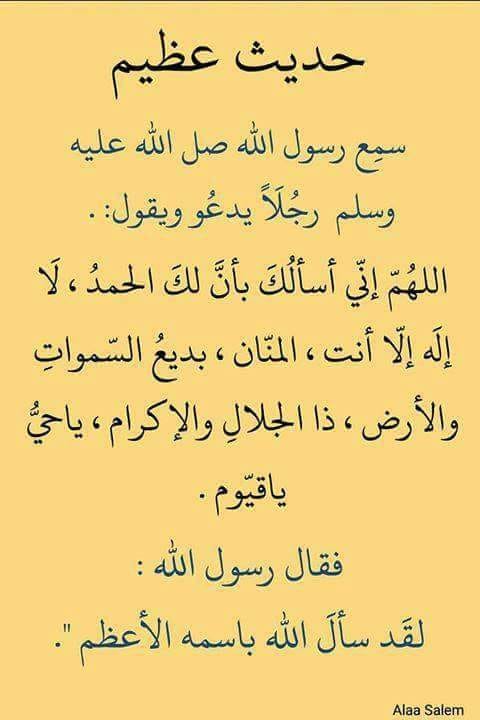 حديث عظيم
سمِع رسول الله صل الله عليه
وسلم رجُلَاً يدعُو ويقول: .
اللهُمّ إنّي أسألُكَ بأنَّ لكَ الحمدُ ، لَا
إلَه إلّا أنت ، المنّان ، بديعُ السّمواتِ
والأرض ، ذا الجلالِ والإكرام ، ياحيُّ
ياقيّوم .
فقال رسول الله :
لقَد سألَ الله باسمه الأعظم ".
Alaa Salem